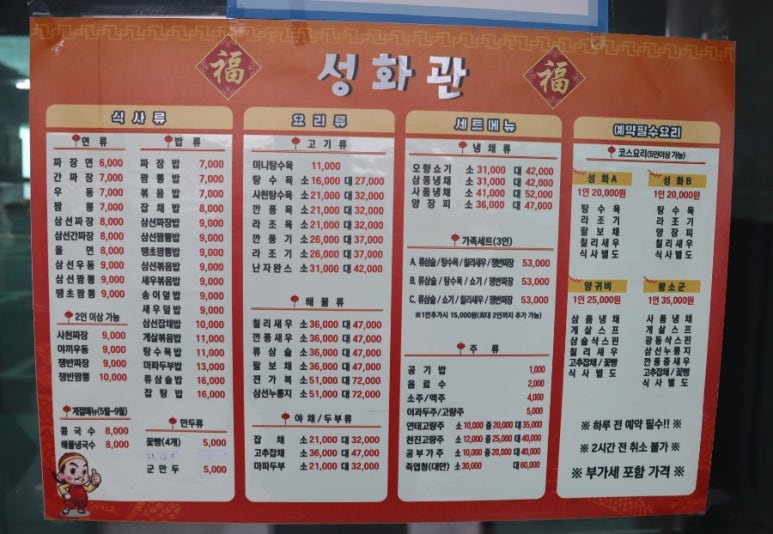 福
성화관
福
식사류
면류
짜장면 6,000
간짜장 7,000
우동 7,000
짬뽕 7,000
삼선짜장 8,000
삼선간짜장 8,000
울면 8,000
삼선우동 9,000
삼선짬뽕 9,000
땡초짬뽕 9,000
2인 이상 가능
사천짜장 9,000
야끼우동 9,000
쟁반짜장 9,000
쟁반짬뽕 10,000
계절메뉴(5월~9월)
콩국수 8,000
해물냉국수 8,000
밥류
짜장밥 7,000
짬뽕밥 7,000
볶음밥 7,000
잡채밥 8,000
삼선짜장밥 9,000
삼선짬뽕밥 9,000
땡초짬뽕밥 9,000
삼선볶음밥 9,000
새우볶음밥 9,000
송이덮밥 9,000
새우덮밥 9,000
삼선잡채밥 10,000
게살볶음밥 11,000
탕수육밥 11,000
마파두부밥 13,000
류삼슬밥 16,000
잡탕밥 16,000
만두류
꽃빵(4개) 5,000
군만두 5,000
요리류
고기류
미니탕수육 11,000
탕수육 소 16,000 대 27,000
사천탕수육 소 21,000 대 32,000
깐풍육 소 21,000 대 32,000
라조육 소 21,000 대 32,000
깐풍기 소 26,000 대 37,000
라조기 소 26,000 대 37,000
난자완스 소 31,000 대 42,000
해물류
칠리새우 소 36,000 대 47,000
깐풍새우 소 36,000 대 47,000
류삼슬 소 36,000 대 47,000
팔보채 소 36,000 대 47,000
전가복 소 51,000 대 72,000
삼선누룽지 소 51,000 대 72,000
야채/두부류
잡채 소 21,000 대 32,000
고추잡채 소 36,000 대 47,000
마파두부 소 21,000 대 32,000
세트메뉴
냉채류
오향쇼기 소 31,000 대 42,000
삼품냉채 소 31,000 대 42,000
사품냉채 소 41,000 대 52,000
양장피 소 36,000 대 47,000
가족세트(3인)
A. 류삼슬/탕수육/칠리새우/쟁반짜장 53,000
B. 류삼슬/탕수육/쇼기/쟁반짜장 53,000
C. 류삼슬/쇼기/칠리새우/쟁반짜장 53,000
※1인추가시 15,000원(최대 2인까지 추가 가능)
주류
공기밥 1,000
음료수 2,000
소주/맥주 4,000
이과두주/고량주 5,000
연태고량주 소 10,000 중 20,000 대 35,000
천진고량주 소 12,000 중 25,000 대 40,000
공부가주 소 10,000 중 20,000 대 40,000
죽엽청(대만) 소 30,000 대 60,000
예약필수요리
코스요리(5인이상 가능)
성화A
1인 20,000원
탕수육
라조기
팔보채
칠리새우
식사별도
성화B
1인 20,000원
탕수육
라조기
양장피
칠리새우
식사별도
양귀비
1인 25,000원
삼품냉채
게살스프
삼슬삭스핀
칠리새우
고추잡채/꽃빵
식사별도
왕소군
1인 35,000원
사품냉채
게살스프
광동삭스핀
삼선누룽지
깐풍중새우
고추잡채/꽃빵
식사별도
※ 하루 전 예약 필수!! ※
※ 2시간 전 취소 불가 ※
※ 부가세 포함 가격 ※